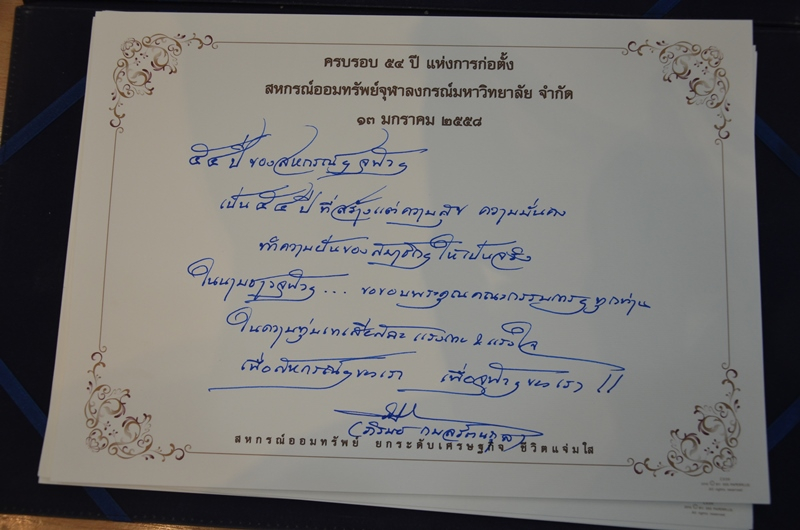 ครบรอบ ๕๔ ปี แห่งการก่อตั้ง
สหกรณ์ออมทรัพย์จุฬาลงกรณ์มหาวิทยาลัย จำกัด
๑๓ มกราคม ๒๕๕๘
๕๔ ปี ของสหกรณ์ฯ จุฬาฯ
เป็น ๕๔ ปี ที่สร้างแต่ความสุข ความมั่นคง
ทำความฝันของสมาชิกฯ ให้เป็นจริง
ในนามชาวจุฬาฯ ... ขอขอบพระคุณคณะกรรมการฯ ทุกท่าน
ในความทุ่มเทเสียสละ แรงกาย & แรงใจ
เพื่อสหกรณ์ฯ ของเรา เพื่อจุฬาฯ ของเรา !!
สหกรณ์ออมทรัพย์ ยกระดับเศรษฐกิจ ชีวิตแจ่มใส